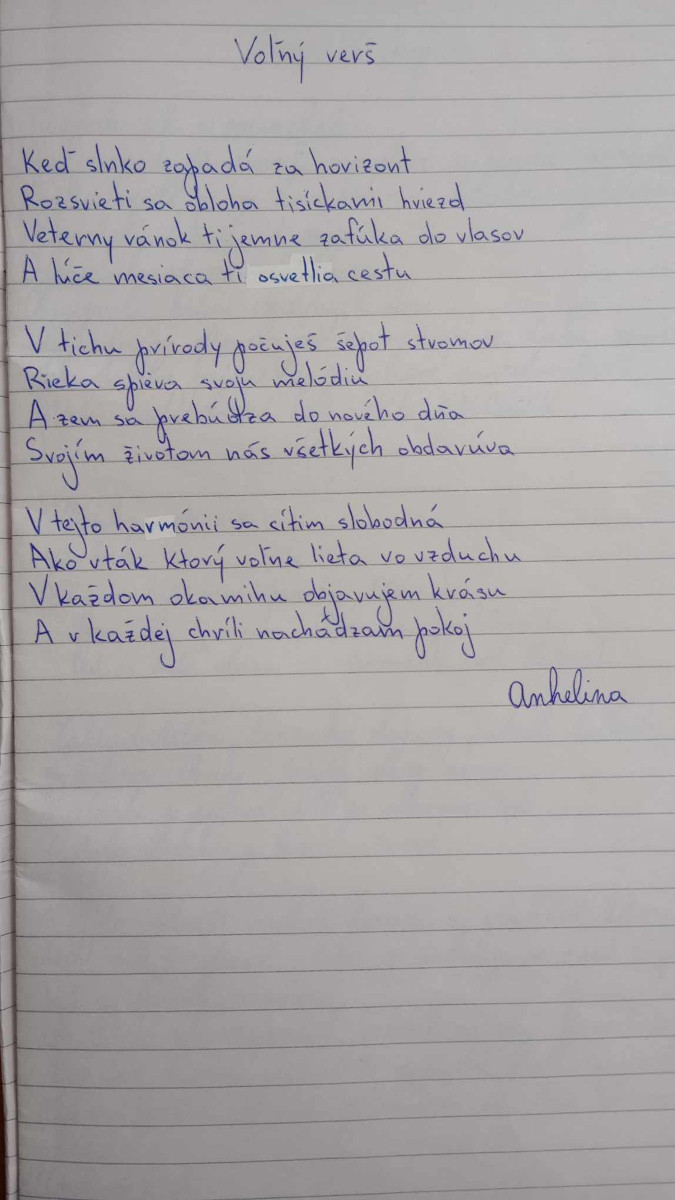 Voľný verš
Keď slnko zapadá za horizont
Rozsvieti sa obloha tisíckami hviezd
Veterny vánok ti jemne zafúka do vlasov
A lúče mesiaca ti osvetlia cestu
V tichu prírody počuješ šepot stromov
Rieka spieva svoju melódiu
A zem sa prebúdza do nového dňa
Svojím životom nás všetkých obdarúva
V tejto harmónii sa cítim slobodná
Ako vták ktorý voľne lieta vo vzduchu
V každom okamihu objavujem krásu
A v každej chvíli nachádzam pokoj
Anhelina